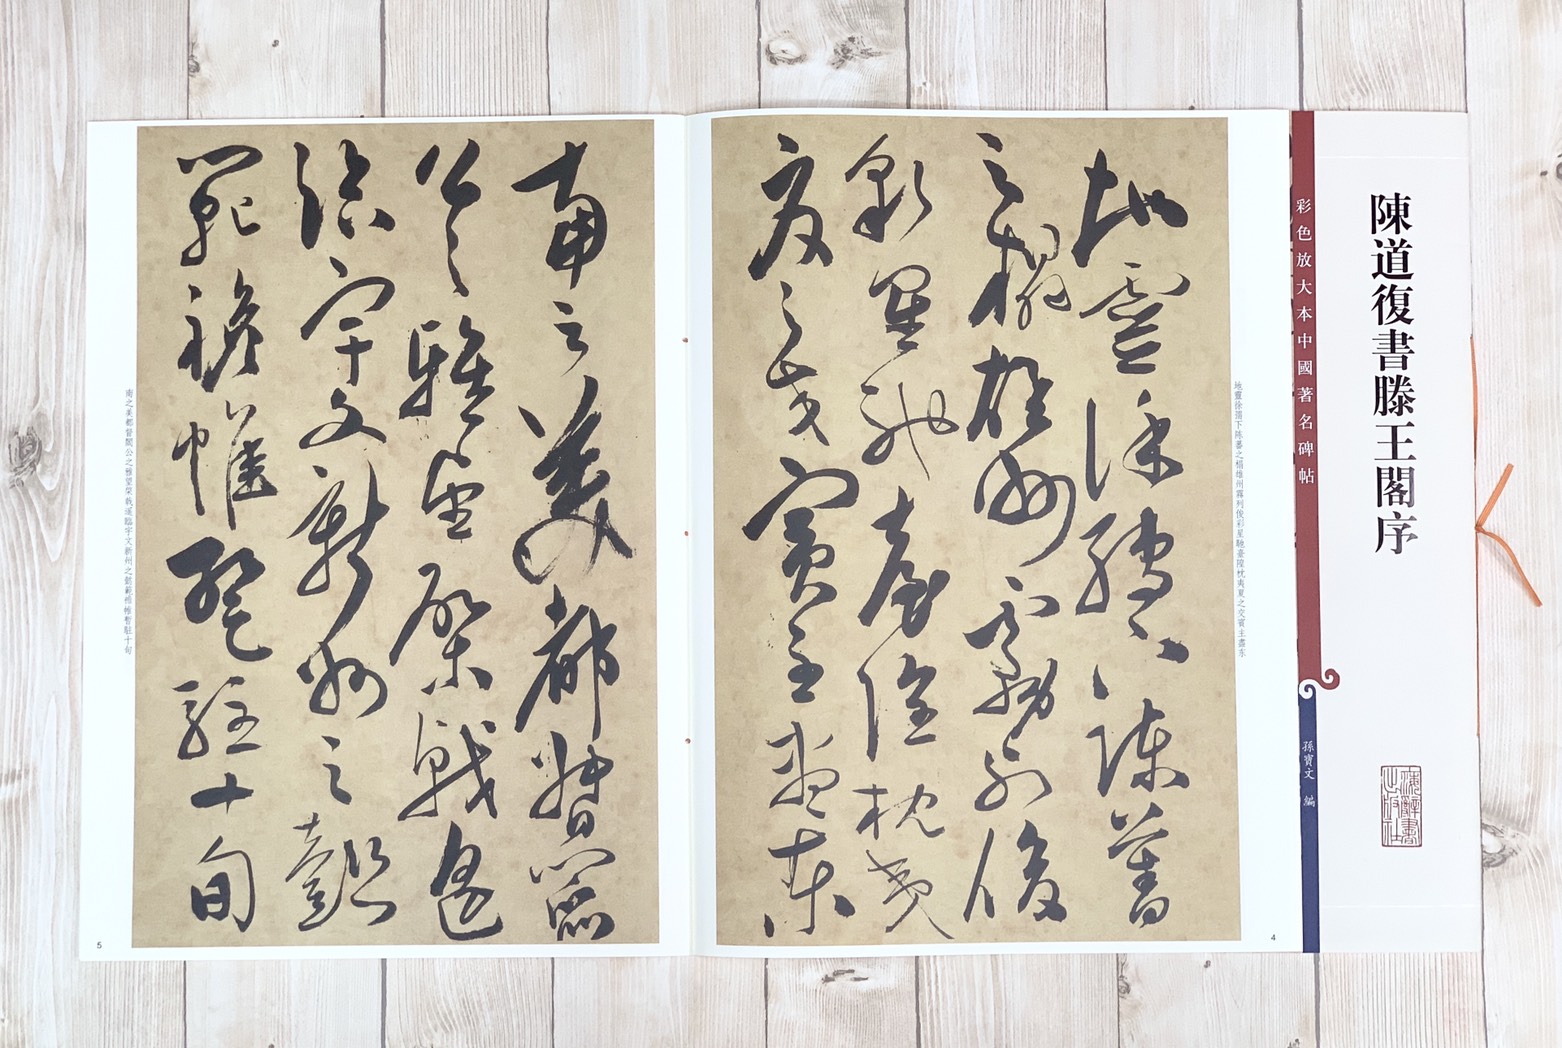 陳道復書滕王閣序
彩色放大本中國著名碑帖
孫寶文 編
地靈徐孺下陳蕃之榻雄州霧列俊彩星馳臺隍枕夷夏之交賓主盡东
地靈徐孺下陳蕃
之榻雄州霧列俊
彩星馳臺隍枕夷
夏之交賓主盡東
4
南之美都督閻
公之雅望棨戟遙
臨宇文新州之懿
範襜帷暫駐十旬
南之美都督閻公之雅望棨戟遙臨宇文新州之懿範襜帷暫駐十旬
5